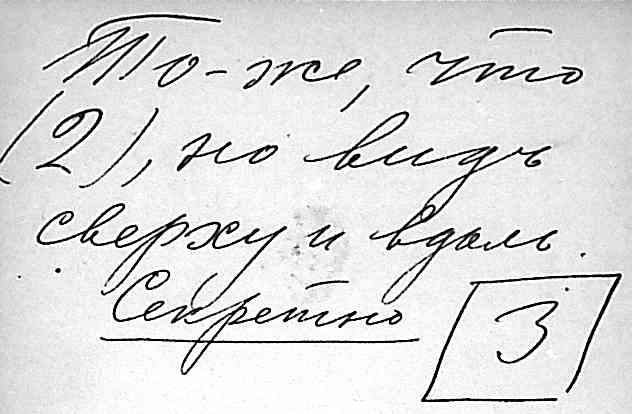 То-же, что
(2), но видъ
сверху и вдаль.
Секретно
3